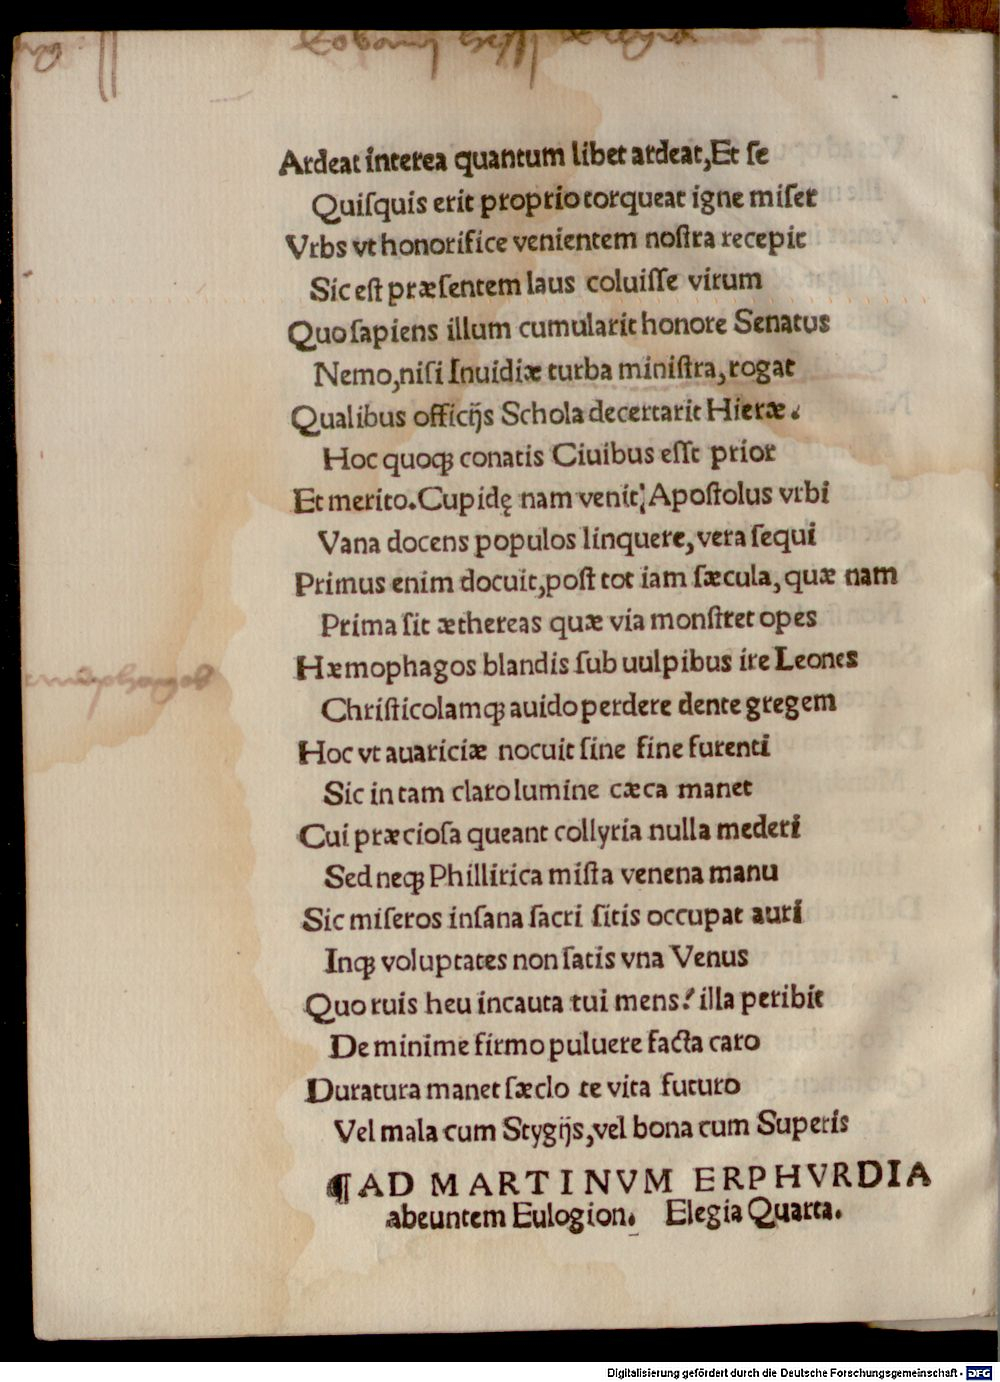 Ardeat interea quantum libet ardeat, Et se
Quiſquis erit proprio torqueat igne miſer
Vrbs vt honorifice venientem noſtra recepit
Sic eſt præſentem laus coluiſſe virum
Quo ſapiens illum cumularit honore Senatus
Nemo, niſi Inuidiæ turba miniſtra, rogat
Qualibus officijs Schola decertarit Hieræ.
Hoc quoqꝫ conatis Ciuibus eſſe prior
Et merito. Cupidę nam venit Apoſtolus vrbi
Vana docens populos linquere, vera ſequi
Primus enim docuit, poſt tot iam ſæcula, quæ nam
Prima ſit æthereas quæ via monſtret opes
Hæmophagos blandis ſub uulpibus ire Leones
Chriſticolamqꝫ auido perdere dente gregem
Hoc vt auariciæ nocuit ſine fine furenti
Sic in tam claro lumine cæca manet
Cui præcioſa queant collyria nulla mederi
Sed neqꝫ Phillirica miſta venena manu
Sic miſeros inſana ſacri ſitis occupat auri
Inqꝫ voluptates non ſatis vna Venus
Quo ruis heu incauta tui mens? illa peribit
De minime firmo puluere facta caro
Duratura manet ſæclo te vita futuro
Vel mala cum Stygijs, vel bona cum Superis
¶ AD MARTINVM ERPHVRDIA
abeuntem Eulogion. Elegia Quarta.
Digitalisierung gefördert durch die Deutsche Forschungsgemeinschaft - DFG